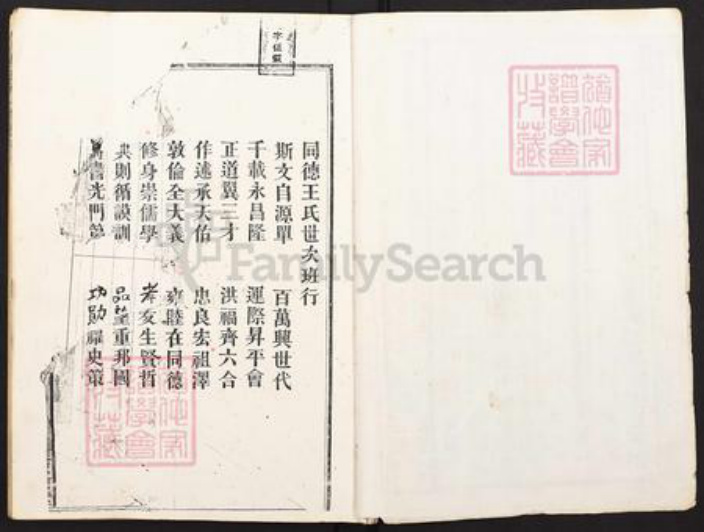 字佰號
同德王氏世次班行
斯文自源單 百萬興世代
千載永昌隆 運際昇平會
正道翼三才 洪福齊六合
作述承天佑 忠良宏祖澤
敦倫全大義 雍睦在同德
修身崇儒學 孝友生賢哲
典則循謨訓 品望重邦國
書光門第 功勛耀史策
FamilySearch